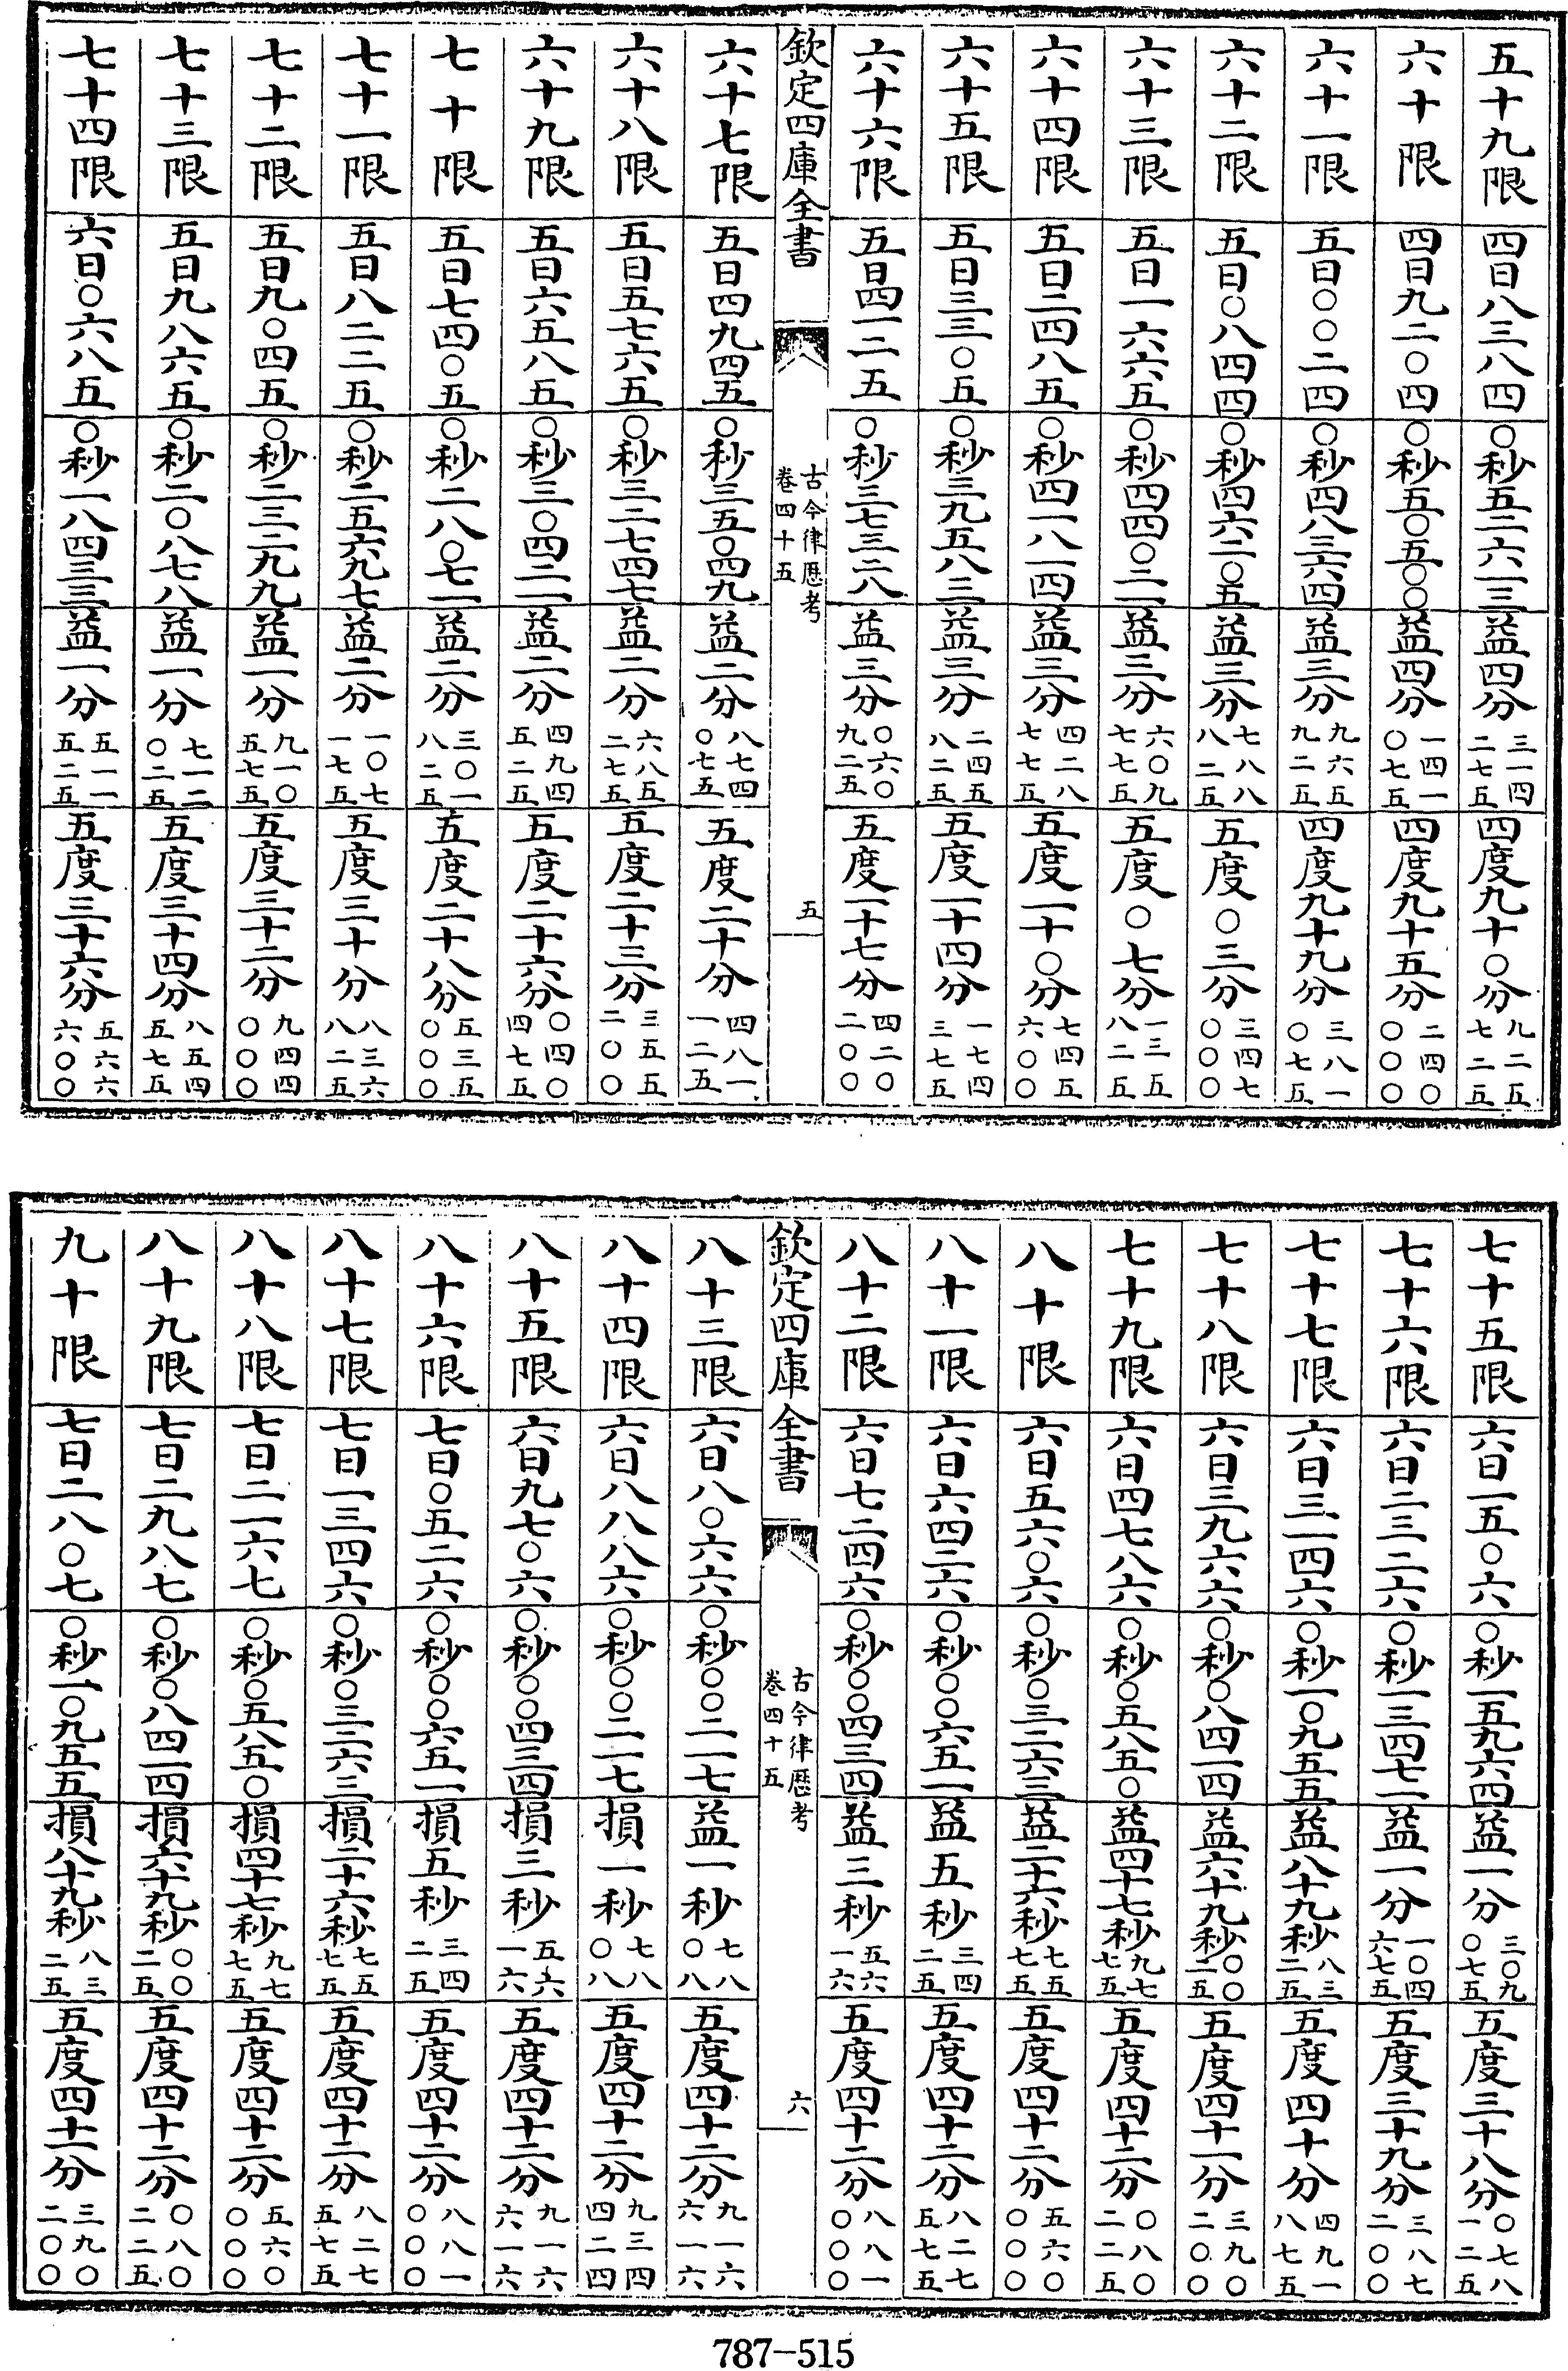 五十九限 四日八三八四 〇秒五二六一三 益四分三一四二七五 四度九十〇分九二五七二五
六十限 四日九二〇四 〇秒五〇五〇〇 益四分一四一〇七五 四度九十五分二四〇〇〇〇
六十一限 五日〇〇二四 〇秒四八三六四 益三分九六五九二五 四度九十九分三八一〇七五
六十二限 五日〇八四四 〇秒四六二〇五 益三分七八八八二五 五度〇三分三四七〇〇〇
六十三限 五日一六六五 〇秒四四〇二一 益三分六〇九七七五 五度〇七分一三五八二五
六十四限 五日二四八五 〇秒四一八一四 益三分四二八七七五 五度一十〇分七四五六〇〇
六十五限 五日三三〇五 〇秒三九五八三 益三分二四五八二五 五度一十四分一七四三七五
六十六限 五日四一二五 〇秒三七三二八 益三分〇六〇九二五 五度一十七分四二〇二〇〇
欽定四庫全書 古今律厯考 卷四十五 五
六十七限 五日四九四五 〇秒三五〇四九 益二分八七四〇七五 五度二十分四八一一二五
六十八限 五日五七六五 〇秒三二七四七 益二分六八五二七五 五度二十三分三五五二〇〇
六十九限 五日六五八五 〇秒三〇四二一 益二分四九四五二五 五度二十六分〇四〇四七五
七十限 五日七四〇五 〇秒二八〇七一 益二分三〇一八二五 五度二十八分五三五〇〇〇
七十一限 五日八二二五 〇秒二五六九七 益二分一〇七一七五 五度三十分八三六八二五
七十二限 五日九〇四五 〇秒二三二九九 益一分九一〇五七五 五度三十二分九四四〇〇〇
七十三限 五日九八六五 〇秒二〇八七八 益一分七一二〇二五 五度三十四分八五四五七五
七十四限 六日〇六八五 〇秒一八四三三 益一分五一一五二五 五度三十六分五六六六〇〇
七十五限 六日一五〇六 〇秒一五九六四 益一分三〇九〇七五 五度三十八分〇七八一二五
七十六限 六日二三二六 〇秒一三四七一 益一分一〇四六七五 五度三十九分三八七二〇〇
七十七限 六日三一四六 〇秒一〇九五五 益八十九秒八三二五 五度四十分四九一八七五
七十八限 六日三九六六 〇秒〇八四一四 益六十九秒〇〇二五 五度四十一分三九〇二〇〇
七十九限 六日四七八六 〇秒〇五八五〇 益四十七秒九七七五 五度四十二分〇八〇二二五
八十限 六日五六〇六 〇秒〇三二六三 益二十六秒七五七五 五度四十二分五六〇〇〇〇
八十一限 六日六四二六 〇秒〇〇六五一 益五秒三四二五 五度四十二分八二七五七五
八十二限 六日七二四六 〇秒〇〇四三四 益三秒五六一六 五度四十二分八八一〇〇〇
欽定四庫全書 古今律厯考 卷四十五 六
八十三限 六日八〇六六 〇秒〇〇二一七 益一秒七八〇八 五度四十二分九一六六一六
八十四限 六日八八八六 〇秒〇〇二一七 損一秒七八〇八 五度四十二分九三四四二四
八十五限 六日九七〇六 〇秒〇〇四三四 損三秒五六一六 五度四十二分九一六六一六
八十六限 七日〇五二六 〇秒〇〇六五一 損五秒三四二五 五度四十二分八八一〇〇〇
八十七限 七日一三四六 〇秒〇三二六三 損二十六秒七五七五 五度四十二分八二七五七五
八十八限 七日二一六七 〇秒〇五八五〇 損四十七秒九七七五 五度四十二分五六〇〇〇〇
八十九限 七日二九八七 〇秒〇八四一四 損六十九秒〇〇二五 五度四十二分〇八〇二二五
九十限 七日二八〇七 〇秒一〇九五五 損八十九秒八三二五 五度四十一分三九〇二〇〇
787-515